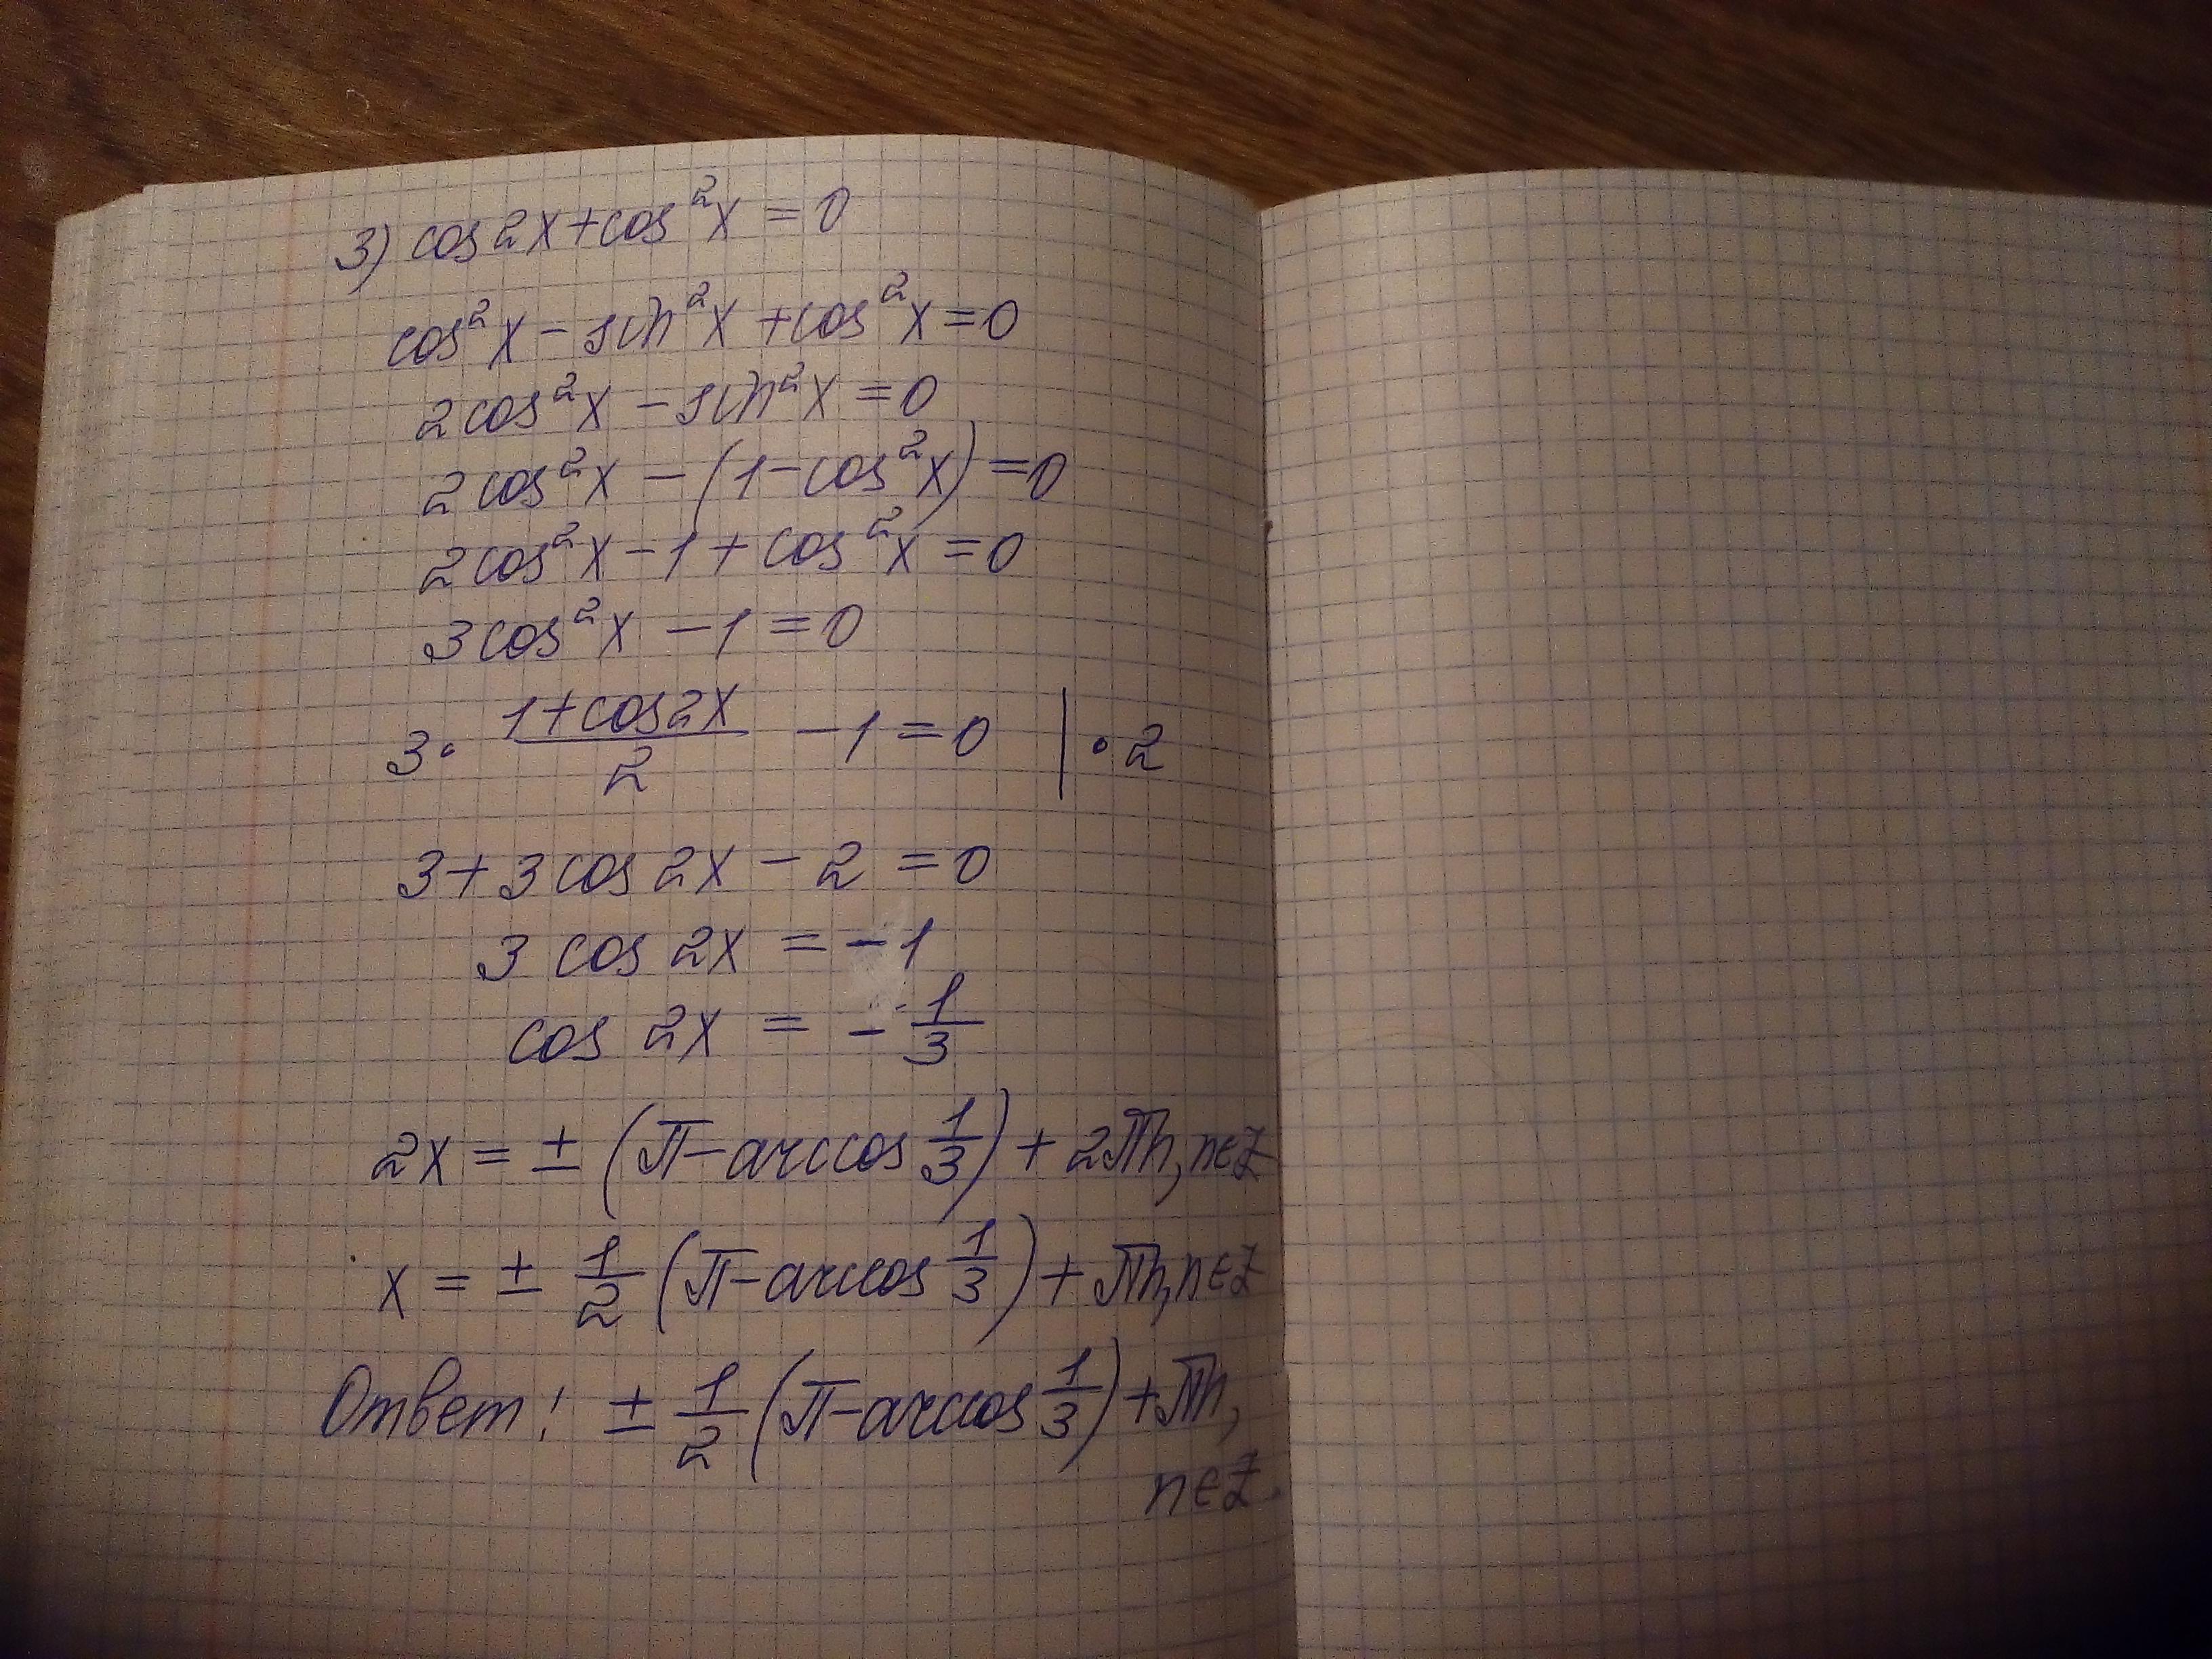 3) cos2x+cos²x=0
cos²x − sin²x +cos²x=0
2cos²x − sin²x=0
2cos²x − (1−cos²x)=0
2cos²x −1+ cos²x=0
3cos²x −1=0
3· (1+cos2x)/2 −1=0 |·2
3+3cos2x−2=0
3 cos 2x = −1
cos 2x = − 1/3
2x = ± (π−arccos 1/3) + 2πn, n∈Z
x = ± 1/2 (π−arccos 1/3) + πn, n∈Z
Ответ: ± 1/2 (π−arccos 1/3) + πn,
n∈Z.